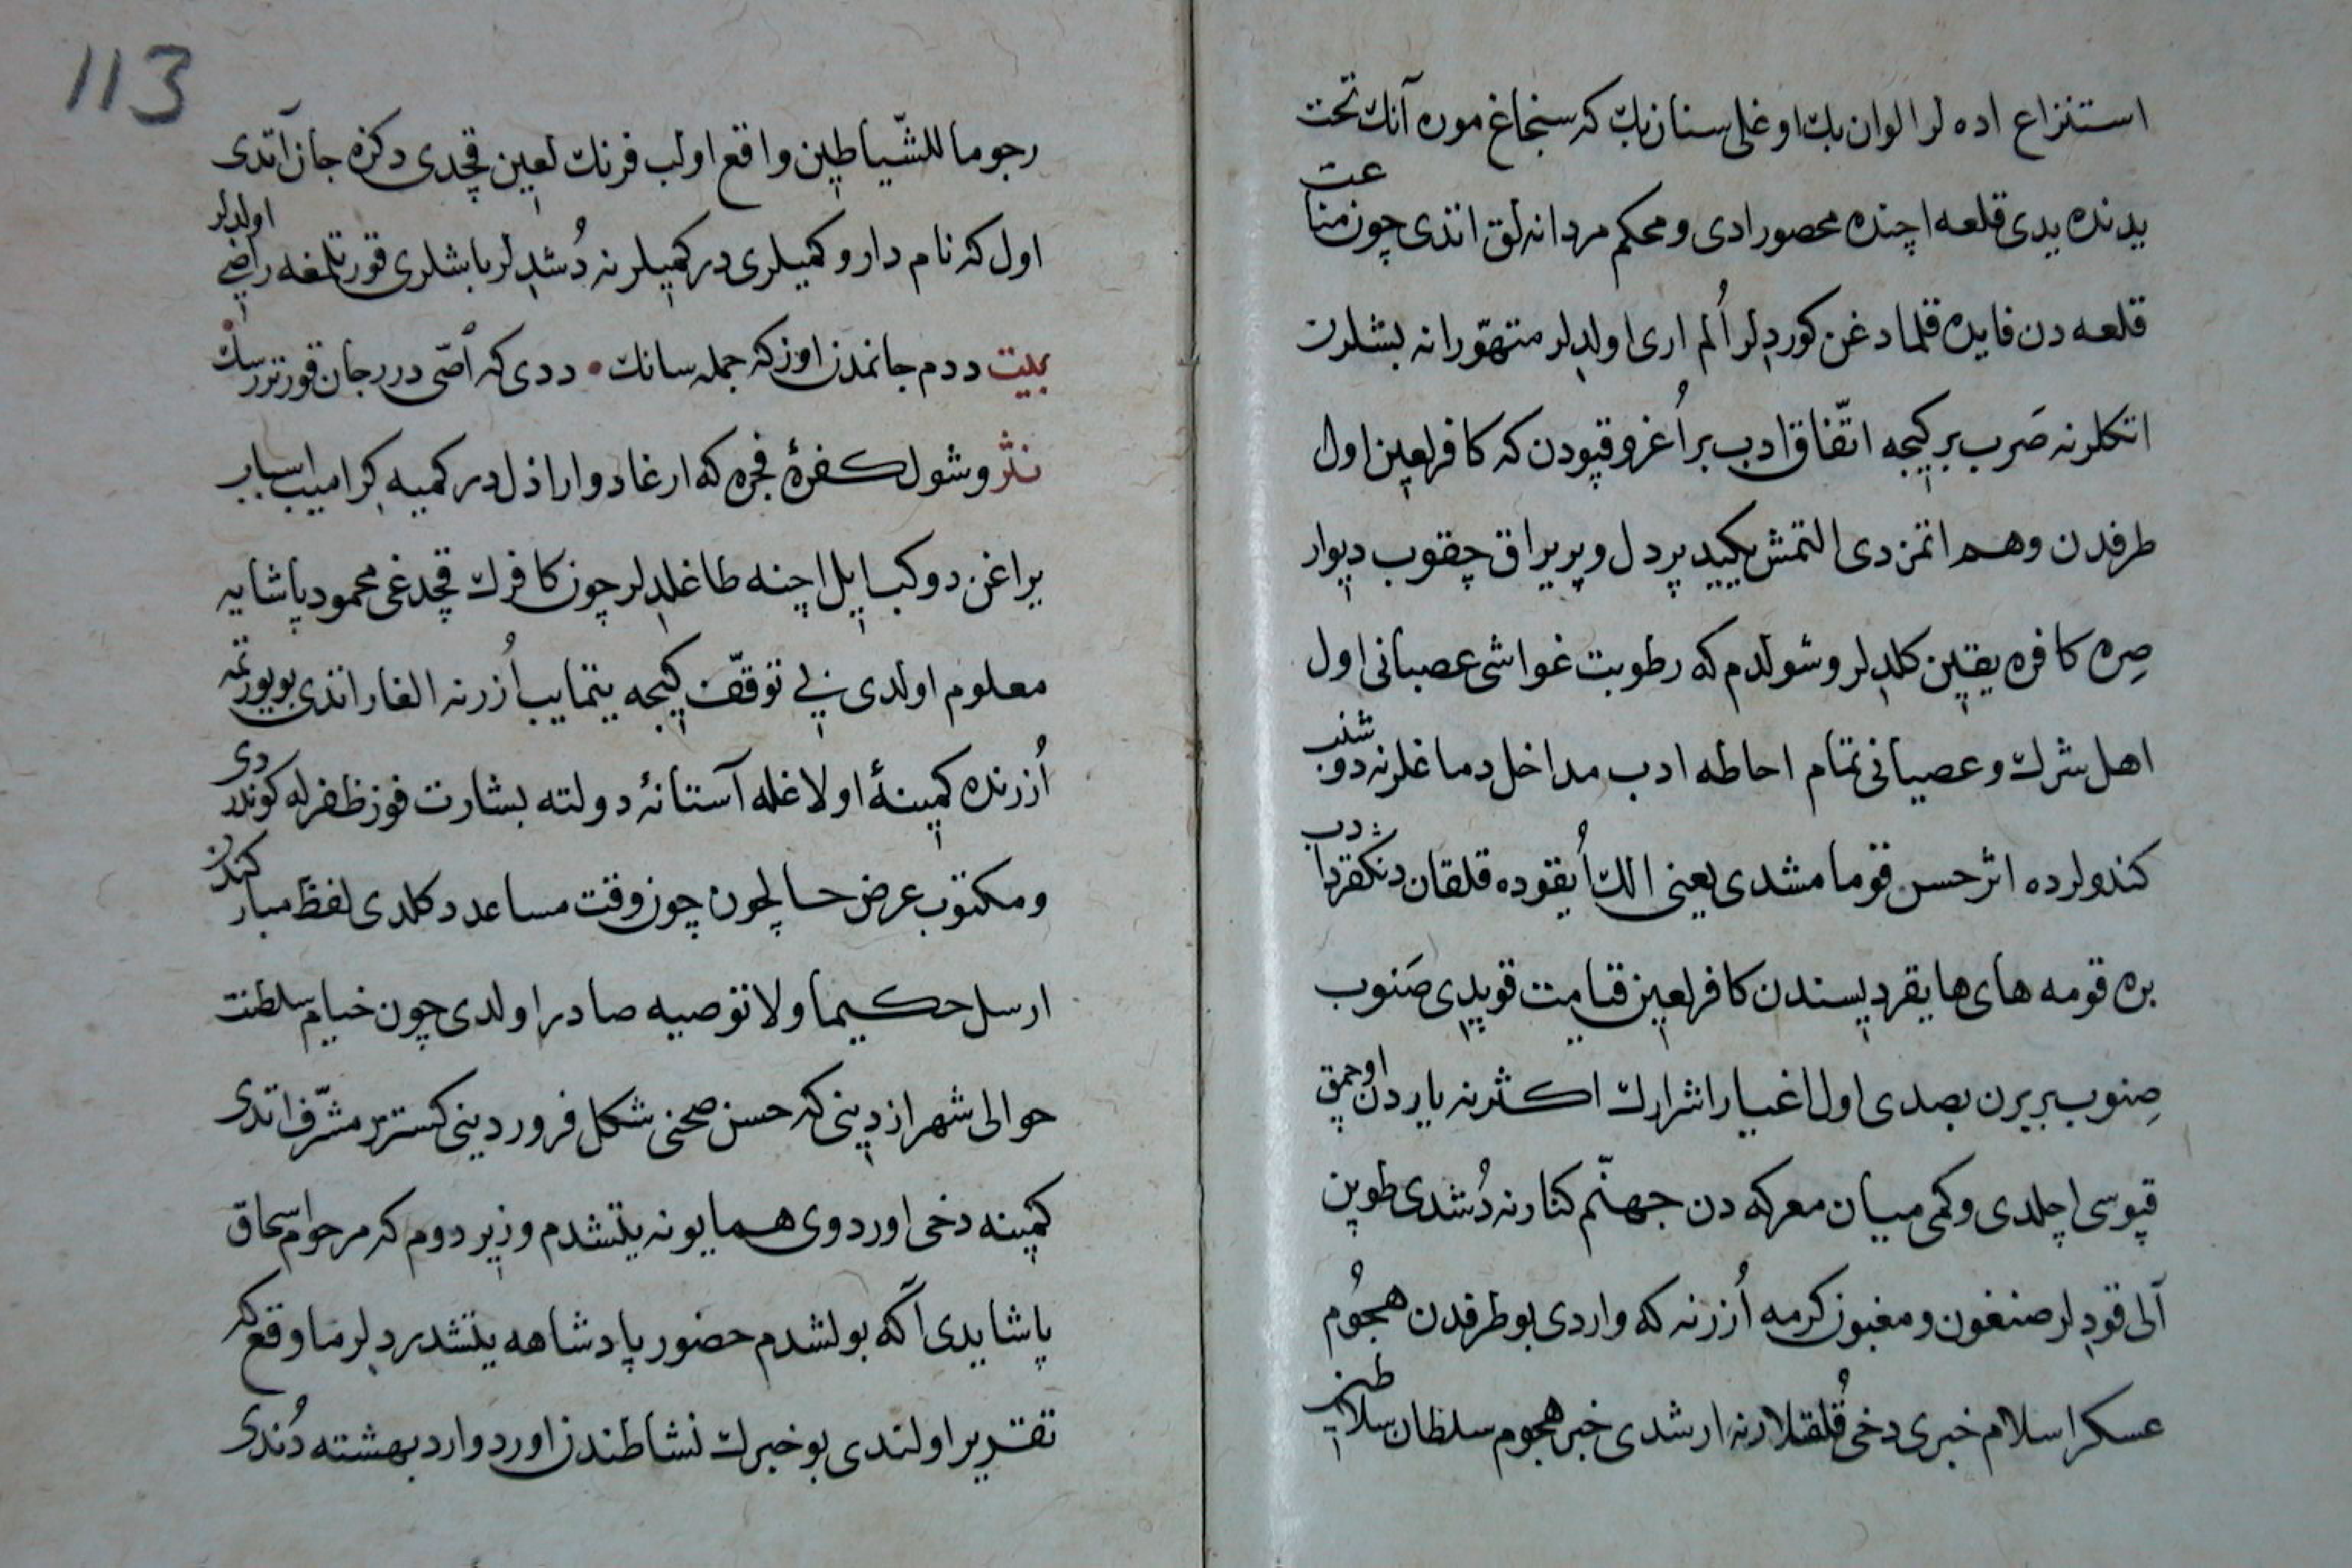 استنزاع اده لر الوان بك اوغلی سنان بك که سنجاغ موره آنك تحت
یدنده یدی قلعه اچنده محصور ادی و محکم مردانه لق اتدی چون مناعت
قلعه دن فایده قلمادغن کوردلر اُلم اری اولدلر متهوّرانه بشلرن
اتکلرنه صَرب بر کیجه اتّفاق ادب بر اُغرو قپودن که کافر لعین اول
طرفدن وهم اتمزدی التمش یکید پردل و پریراق چقوب دیوار
صِره کافره یقین کلدلر و شولدم که رطوبت غواشی عصبانی اول
اهل شرك و عصیانی تمام احاطه ادب مداخل دماغلرنه دوشنب
کندولرده اثر حسن قومامشدی یعنی الك اُیقوده قلقان دنکقردادب
بره قومه های هایقردیسندن کافر لعین قیامت قویدی صَنوب
صِنوب بربرن بصدی اول اغیار اشرارك اکثرنه یاردن اوچمق
قپوسی اچلدی و کمی میان معرکه دن جهنّم کنارنه دُشدی طوپن
آلی قودلر صنغون و مغبون کرمه اُزرنه که واردی بو طرفدن هجُوم
عسکر اسلام خبری دخی قُلقلارنه ارشدی خبر هجوم سلطان سلاطین
113
رجوما للشّیاطین واقع اولب فرنك لعین قچدی دکزه جان آتدی
اول که نام دار و کمیلری در کمیلرنه دُشدلر باشلری قورتلمغه راضی اولدلر
بیت ددم جانمدن اوزکه جمله سانك • ددی که اصّی درر جان قورترر سك
نثر و شول کفرهٔ فجره که ارغاد و اراذل در کمییه کرامیب اسباب
یراغن دوکب ایل اچنه طاغلدلر چون کافرك قچدغی محمود پاشایه
معلوم اولدی بی توقّف کیجه یتمایب اُزرنه الغار اتدی بو یورتمه
اُزرنده کمینهٔ اولاغله آستانهٔ دولته بشارت فوز ظفرله کوندردی
و مکتوب عرض حالجون چون وقت مساعد دکلدی لفظ مبارکندن
ارسل حکیما ولا توصیه صادر اولدی چون خیام سلطنت
حوالی شهر ازدینی که حسن صحنی شکل فروردینی کسترر مشرّف اتدی
کمینه دخی اوردوی همایونه یتشدم وزیر دوم که مرحوم اسحاق
پاشایدی آکه بولشدم حضور پادشاهه یتشدردلر ما وقع که
تقریر اولندی بو خبرك نشاطندن اوردو اردبهشته دُندی